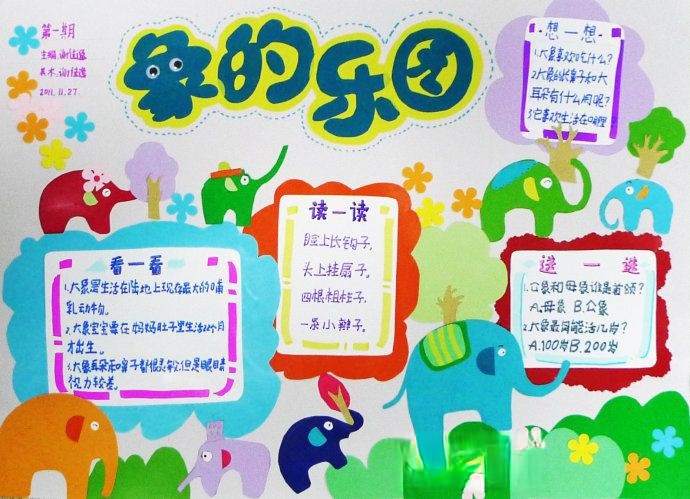 第一期
主编：谢佳遥
美术：谢佳遥
2011.11.27
象的乐园
·想一想·
1.大象喜欢吃什么？
2.大象的长鼻子和大
耳朵有什么用呢？
3.它喜欢生活在哪里
看一看
1.大象是生活在陆地上现存最大的哺
乳动物。
2.大象宝宝要在妈妈肚子里生活22个月
才出生。
3.大象耳朵和鼻子都很灵敏，但是眼睛
视力较差。
读一读
脸上长钩子，
头上挂扇子。
四根粗柱子，
一条小辫子。
选一选
1.公象和母象谁是首领？
A.母象 B.公象
2.大象最高能活几岁？
A.100岁 B.200岁